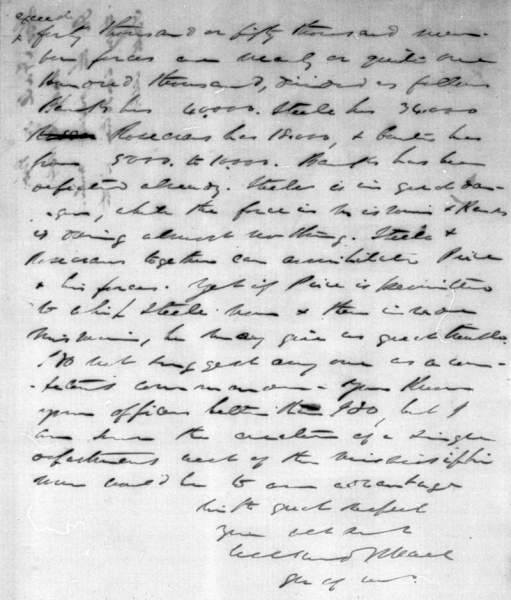 exceed
forty thousand or fifty thousand men
Our forces are nearly or quite one
hundred thousand, divided as follows
Banks has 40.000. Steele has 36000
Rosecrans has 18000, & Curtis has
from 5000. to 10000. Banks has been
defeated already. Steele is in great dan-
-ger, while the forces in Missouri & Kansas
is doing almost nothing. Steele &
Rosecrans together can annihilate Price
& his forces. Yet if Price is permitted
to whip Steele now & then invade
Missouri, he may give us great trouble.
I do not suggest any one as a com-
-petent commander - You know
your officers better than I do, but I
am sure the creation of a single
department west of the Mississippi
now would be to our advantage
With great respect
Your obt Servt